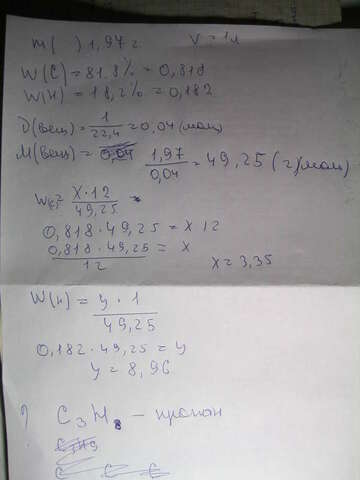 m( ) 1,97 г V = 1л
W(C) = 81.8% = 0,818
W(H) = 18,2% = 0,182
ν(вещ) = 1/22,4 = 0,04 (мол)
M(вещ) = 0,04 1,97/0,04 = 49,25 (г/мол)
W(C) = x·12/49,25 =
0,818·49,25 = x 12
0,818·49,25/12 = x x = 3,35
W(H) = y·1/49,25
0,182·49,25 = y
y = 8,96
? C₃H₈ – пропан
C C C